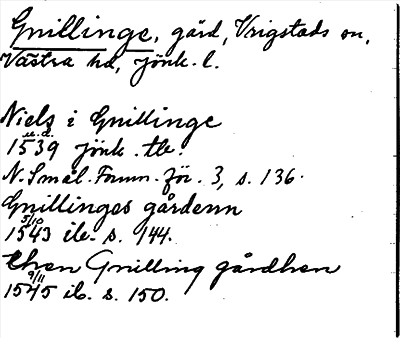 Gnillinge, gård, Vrigstads sn,
Västra hd, Jönk. l.
Niels i Gnillinge
u.d.
1539 Jönk. tb.
N. Smål. Fornm. för. 3, s. 136.
Gnillinges gårdenn
5/10
1543 ib. s. 144.
then Gnilling gårdhen
9/11
1545 ib. s. 150.